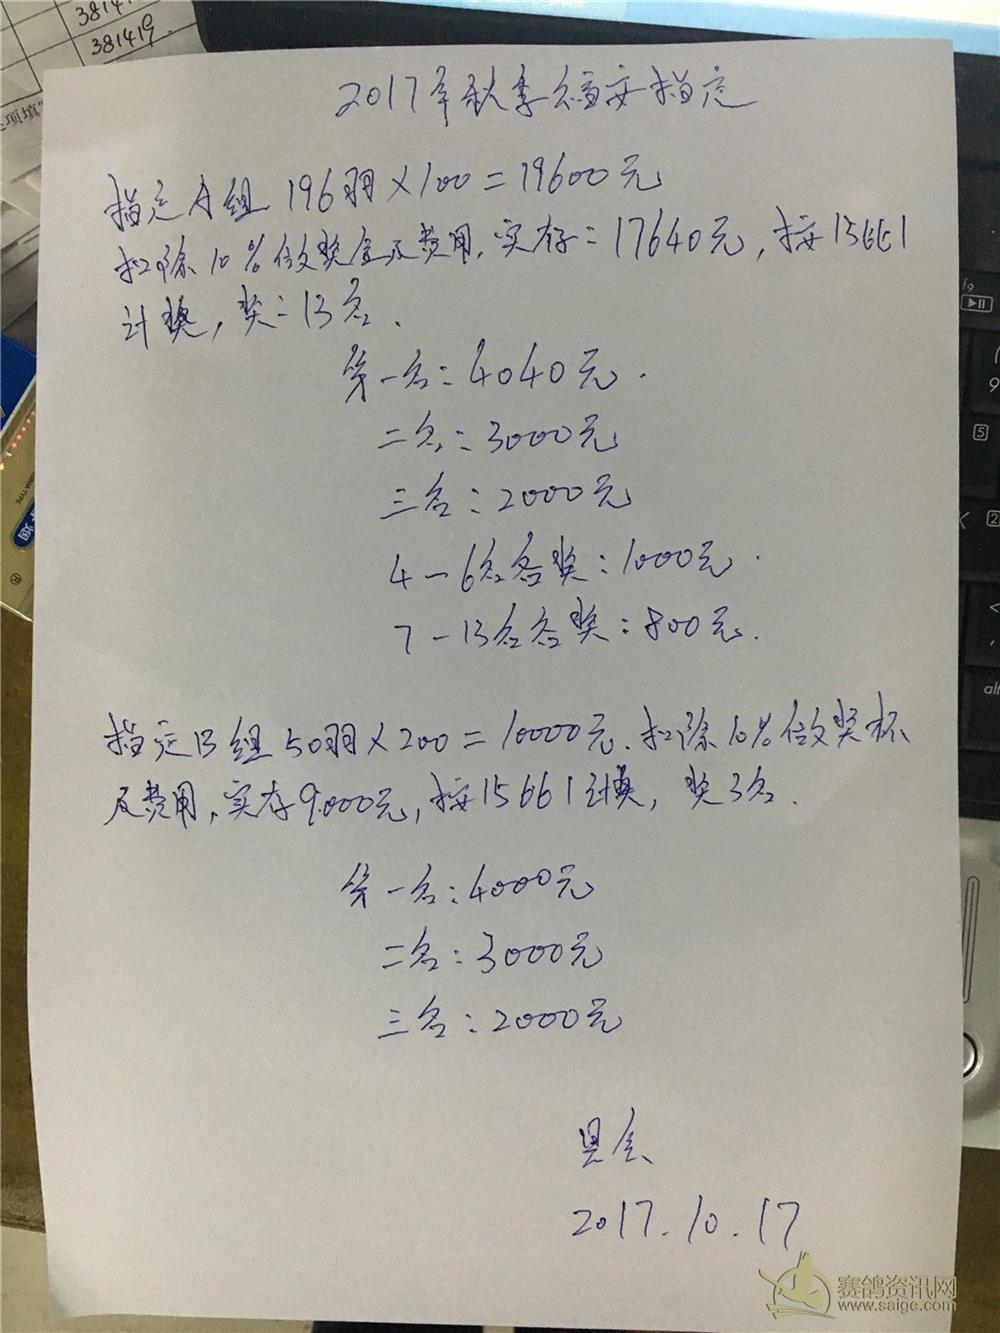 381419
381419.
项填
2017年秋季 指定
指定A组 196羽×100=19600元
扣除10%做奖金及费用,实存:17640元,按15661
计奖,奖:13名.
第一名:4040元.
二名:3000元
三名:2000元
4-6名各奖:1000元.
7-13名各奖:800元.
指定B组50羽×200=10000元.扣除10%做奖杯
及费用,实存9.000元,按15661计奖,奖3名.
第一名:4000元
二名:3000元
三名:2000元
2017.10.17
赛鸽资讯网
www.saige.com
f9
9
5
2
alt